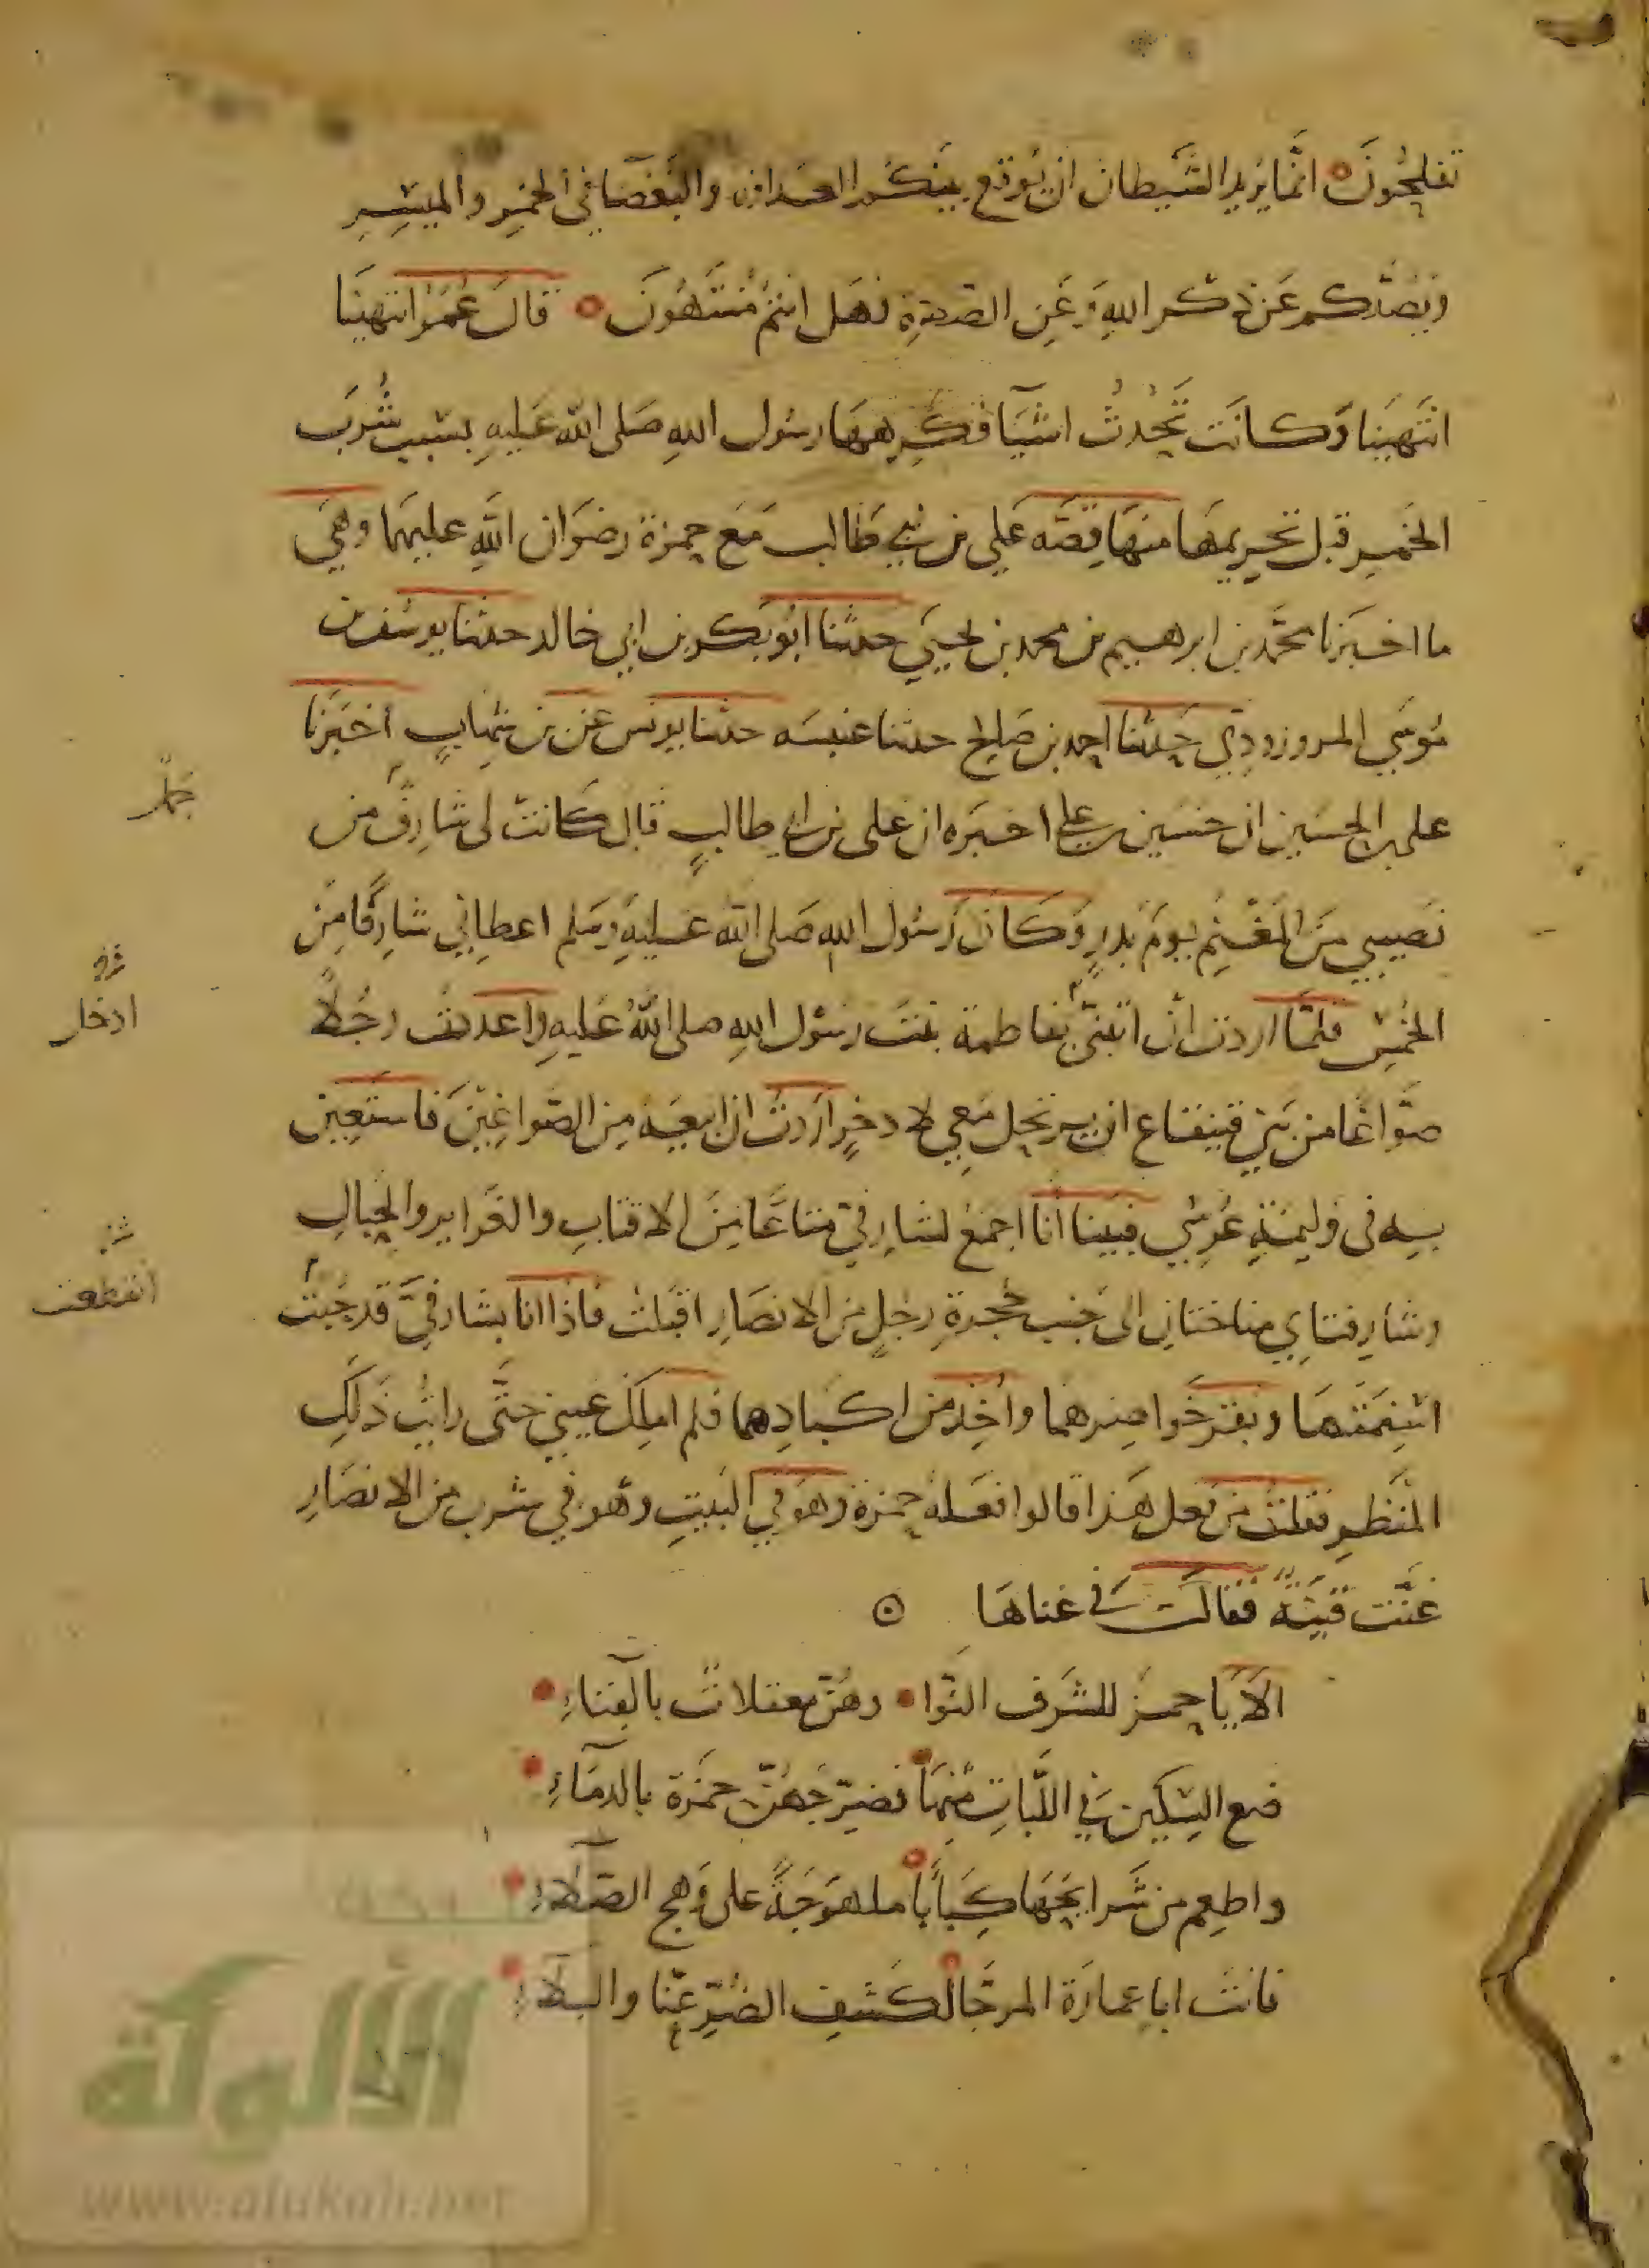 تفلحون انما يريد الشيطان ان يوقع بينكم العداوة والبغضا في الخمر والميسر
ويصدكم عن ذكر الله وعن الصلوة فهل انتم منتهون قال عمر انتهينا
انتهينا وكانت تحدث اشيا فكرهها رسول الله صلى الله عليه بسبب شرب
الخمر قبل تحريمها منها قصه علي بن ابي طالب مع حمزة رضوان الله عليهما وهي
ما اخبرنا محمد بن ابرهيم بن محمد بن يحيى حدثنا ابو بكر بن ابي خالد حدثنا يوسف بن
موسى المروزوذي حدثنا احمد بن صالح حدثنا عنبسه حدثنا يونس عن بن شهاب اخبرنا
على بن الحسين ان حسين بن علي اخبره ان على بن ابي طالب قال كانت لى شارف من
نصيبي من المغنم يوم بدر وكان رسول الله صلى الله عليه وسلم اعطاني شارفا من
الخمس فلما اردت ان ابتني بفاطمة بنت رسول الله صلى الله عليه واعدت رجلا
صواغا من بني قينقاع ان يرتحل معي لا دخر اردت ان ابيعه من الصواغين فاستعين
به في وليمة عرسي فبينا انا اجمع لشارفي متاعا من الاقتاب والغراير والحبال
وشارفتاي مناختان الى جنب حجرة رجل من الانصار اقبلت فاذا انا بشارفي قد جبت
اسنمتهما وبقر خواصرهما واخذ من اكبادهما فلم املك عيني حتى رايت ذلك
المنظر فقلت من فعل هذا قالوا فعله حمزة وهو في البيت وهو في شرب من الانصار
غنت قينة فقالت في غناها
الا يا حمز للشرف النوا وهن معقلات بالفناء
ضع السكين في اللبات منها فضرجهن حمزة بالدماء
واطعم من شرايحها كبابا ملهوجة على وهج الصلاء
فانت ابا عمارة المرجا لكشف الضر عنا والبلاء
جمل
ادخار
انقطعت
الألوكة
www.alukah.net